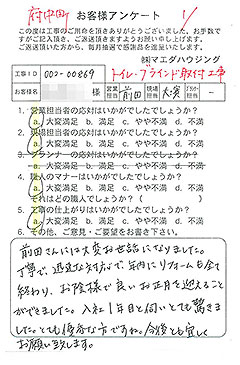 府中町
お客様アンケート
この度は工事のご用命を頂きありがとうございました。お手数で
すがご記入頂き、ご返送頂きますようお願い申し上げます。
ご返送頂いた方から、毎月抽選で感謝品を進呈いたします。
㈱マエダハウジング
工事ID 002-00869 トイレ・ブラインド取付工事
お客様名 様 営業担当 前田 現場担当 大濱 プランナー担当
1. 営業担当者の応対はいかがでしたでしょうか?
a. 大満足 b. 満足 c. やや不満 d. 不満
2. 現場担当者の応対はいかがでしたでしょうか?
a. 大満足 b. 満足 c. やや不満 d. 不満
3. プランナーの応対はいかがでしたでしょうか?
a. 大満足 b. 満足 c. やや不満 d. 不満
4. 職人のマナーはいかがでしたでしょうか?
a. 大満足 b. 満足 c. やや不満 d. 不満
それはどの職人でしょうか?( )
5. 工事の仕上がりはいかがでしたでしょうか?
a. 大満足 b. 満足 c. やや不満 d. 不満
6. その他、ご意見・ご要望をお書き下さい。
前田さんには大変お世話になりました。
丁寧で、迅速な対応で、年内にリフォームも全て
終わり、お陰様で良いお正月を迎えることが
できました。入社1年目と伺いとても驚きま
した。とても優秀な方ですね。今後とも宜しく
お願い致します。